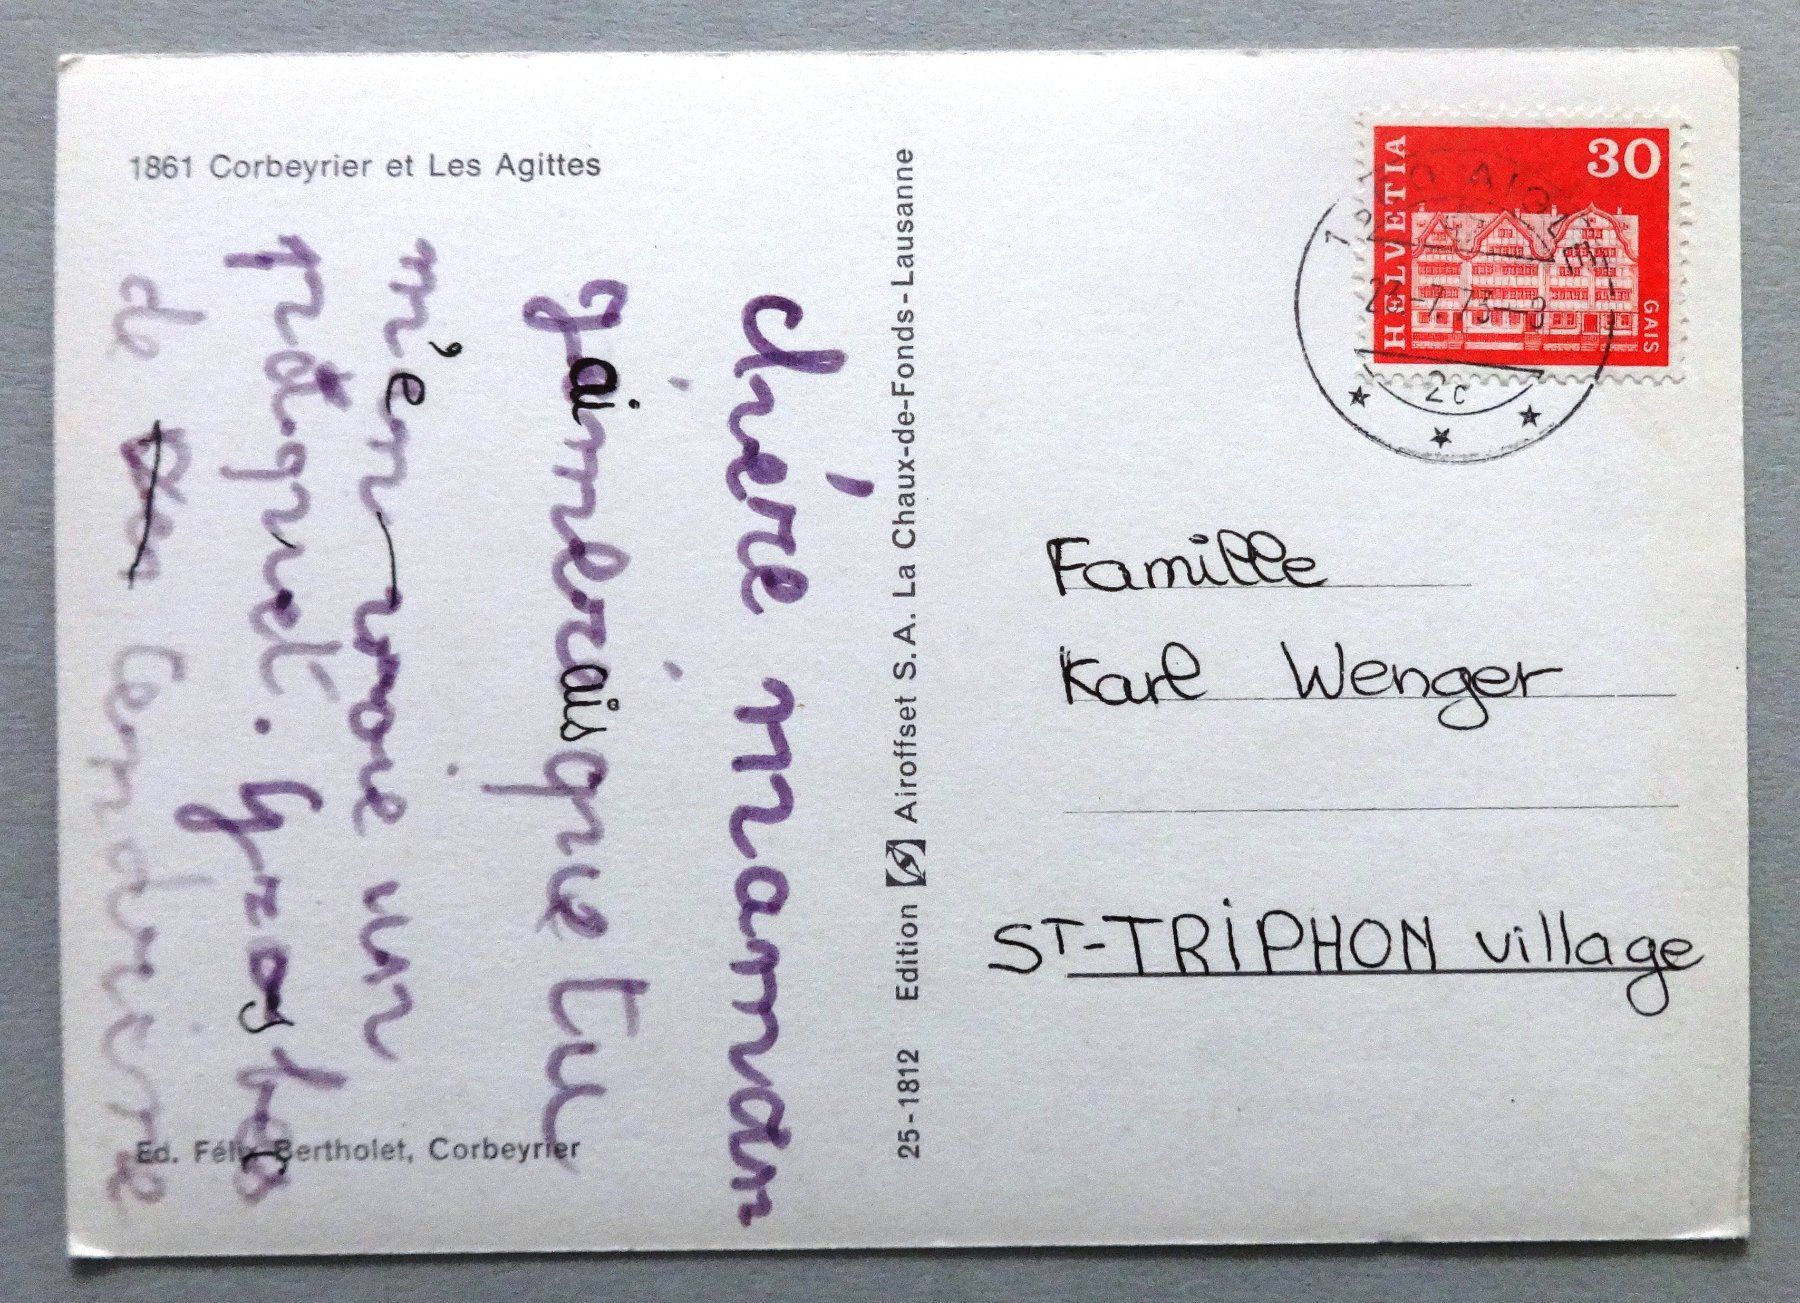 1861 Corbeyrier et Les Agittes
chère maman
gaimerais que tu
m'envoie un
paquet. Gros bec
de
Ed. Félix Bertholet, Corbeyrier
25-1812 Edition Airoffset S.A. La Chaux-de-Fonds-Lausanne
HELVETIA
30
GAIS
1860 AIGLE
23.-7.73-8
2c
Famille
Karl Wenger
ST-TRIPHON village